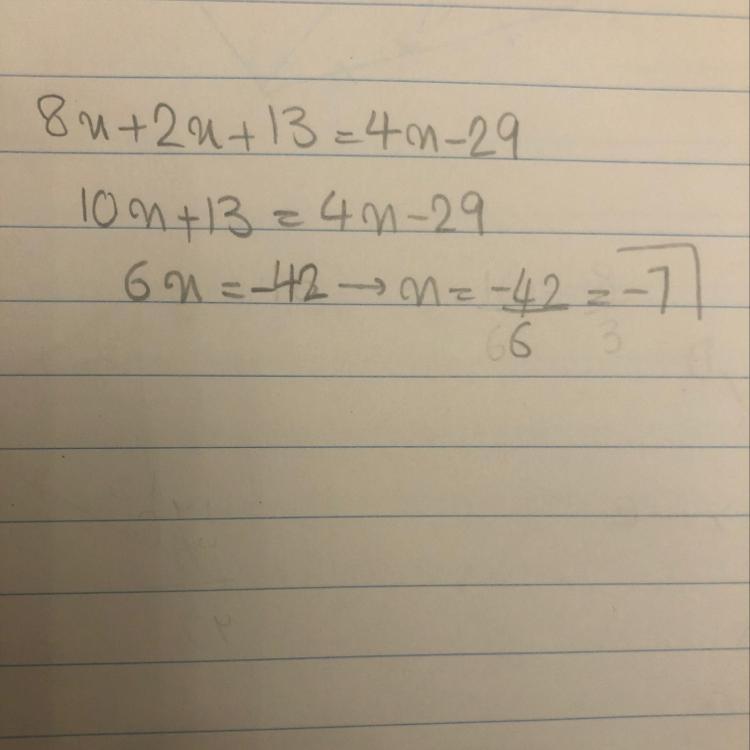 8x+2x+13=4x-29
10x+13=4x-29
6x=-42→x=-42/6=-7